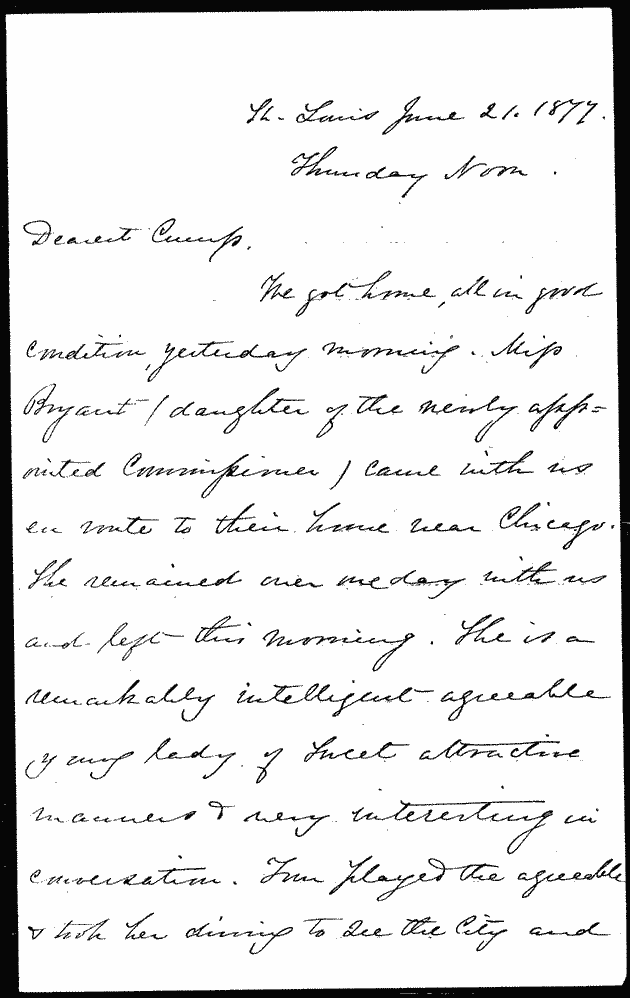 St. Louis June 21. 1877.
Thursday Noon.
Dearest Cump.
We got home, all in good
condition, yesterday morning. Miss
Bryant (daughter of the newly app=
ointed Commissioner) came with us
en route to their home near Chicago.
She remained over one day with us
and left this morning. She is a
remarkably intelligent agreeable
young lady of sweet attractive
manners & very interesting in
conversation. Tom played the agreeable
& took her driving to see the City and